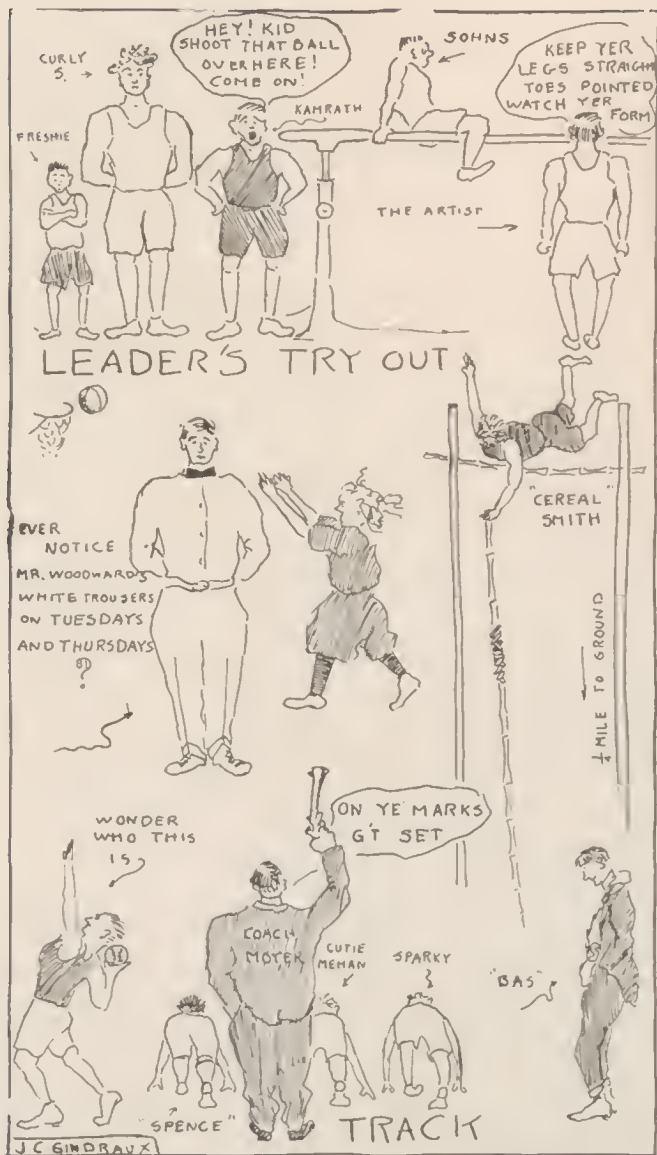 CURLY
S.
HEY! KID
SHOOT THAT BALL
OVER HERE!
COME ON!
SOHNS
KEEP YER
LEGS STRAIGHT
TOES POINTED
WATCH YER
FORM
FRESHIE
KAMRATH
THE ARTIST
LEADER'S TRY OUT
"CEREAL"
SMITH
EVER
NOTICE
MR. WOODWARD'S
WHITE TROUSERS
ON TUESDAYS
AND THURSDAYS
?
1/4 MILE TO GROUND
WONDER
WHO THIS
IS
ON YE MARKS
G'T SET
COACH
MOYER
CUTIE
MEHAN
SPARKY
"BAS"
"SPENCE"
TRACK
J C GINDRAUX